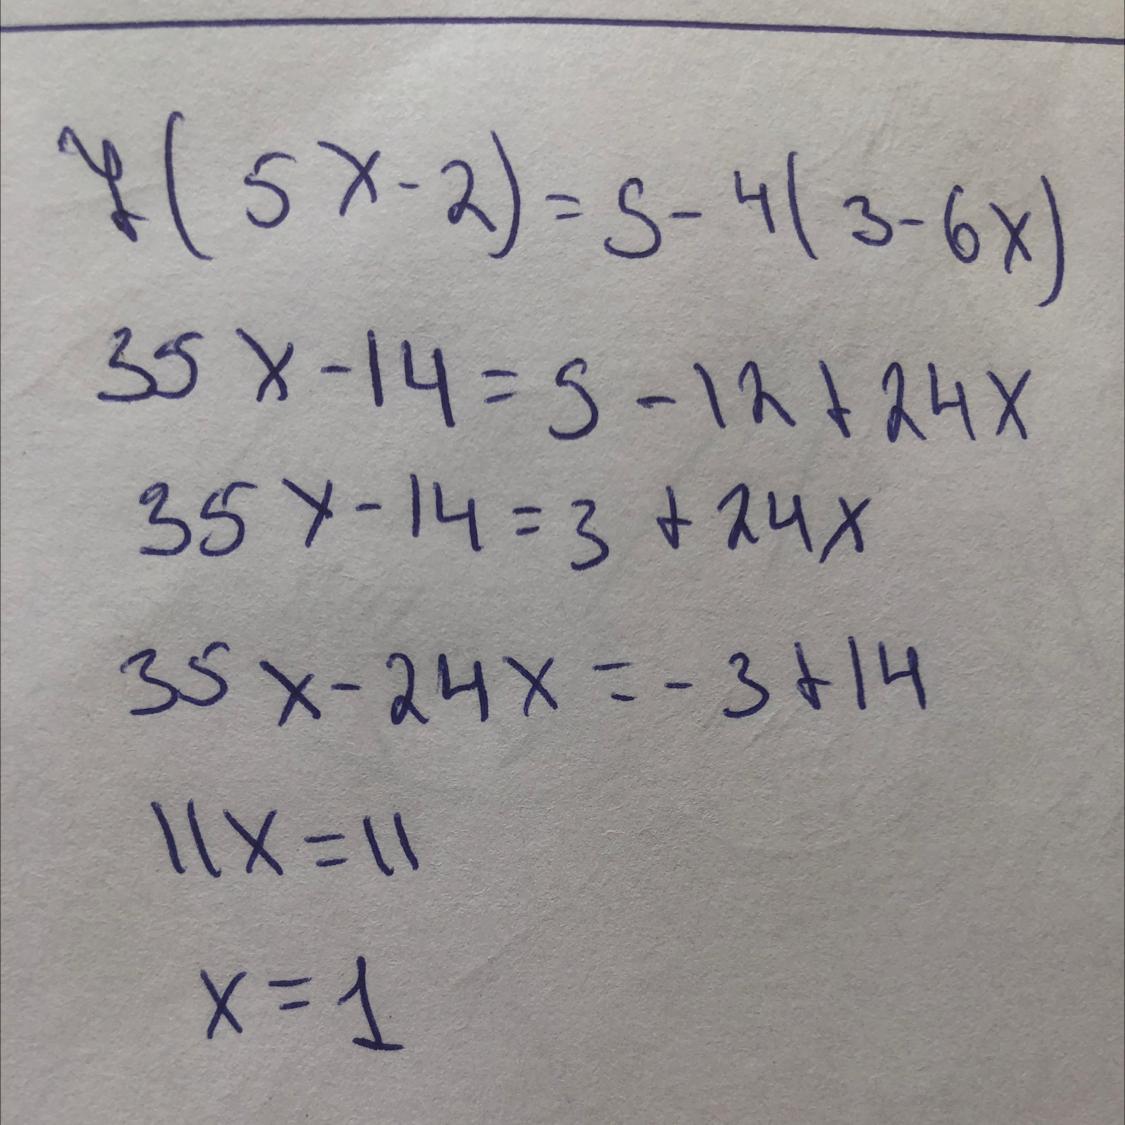 7(5x-2)=5-4(3-6x)
35x-14=5-12+24x
35x-14=3+24x
35x-24x=-3+14
11x=11
x=1